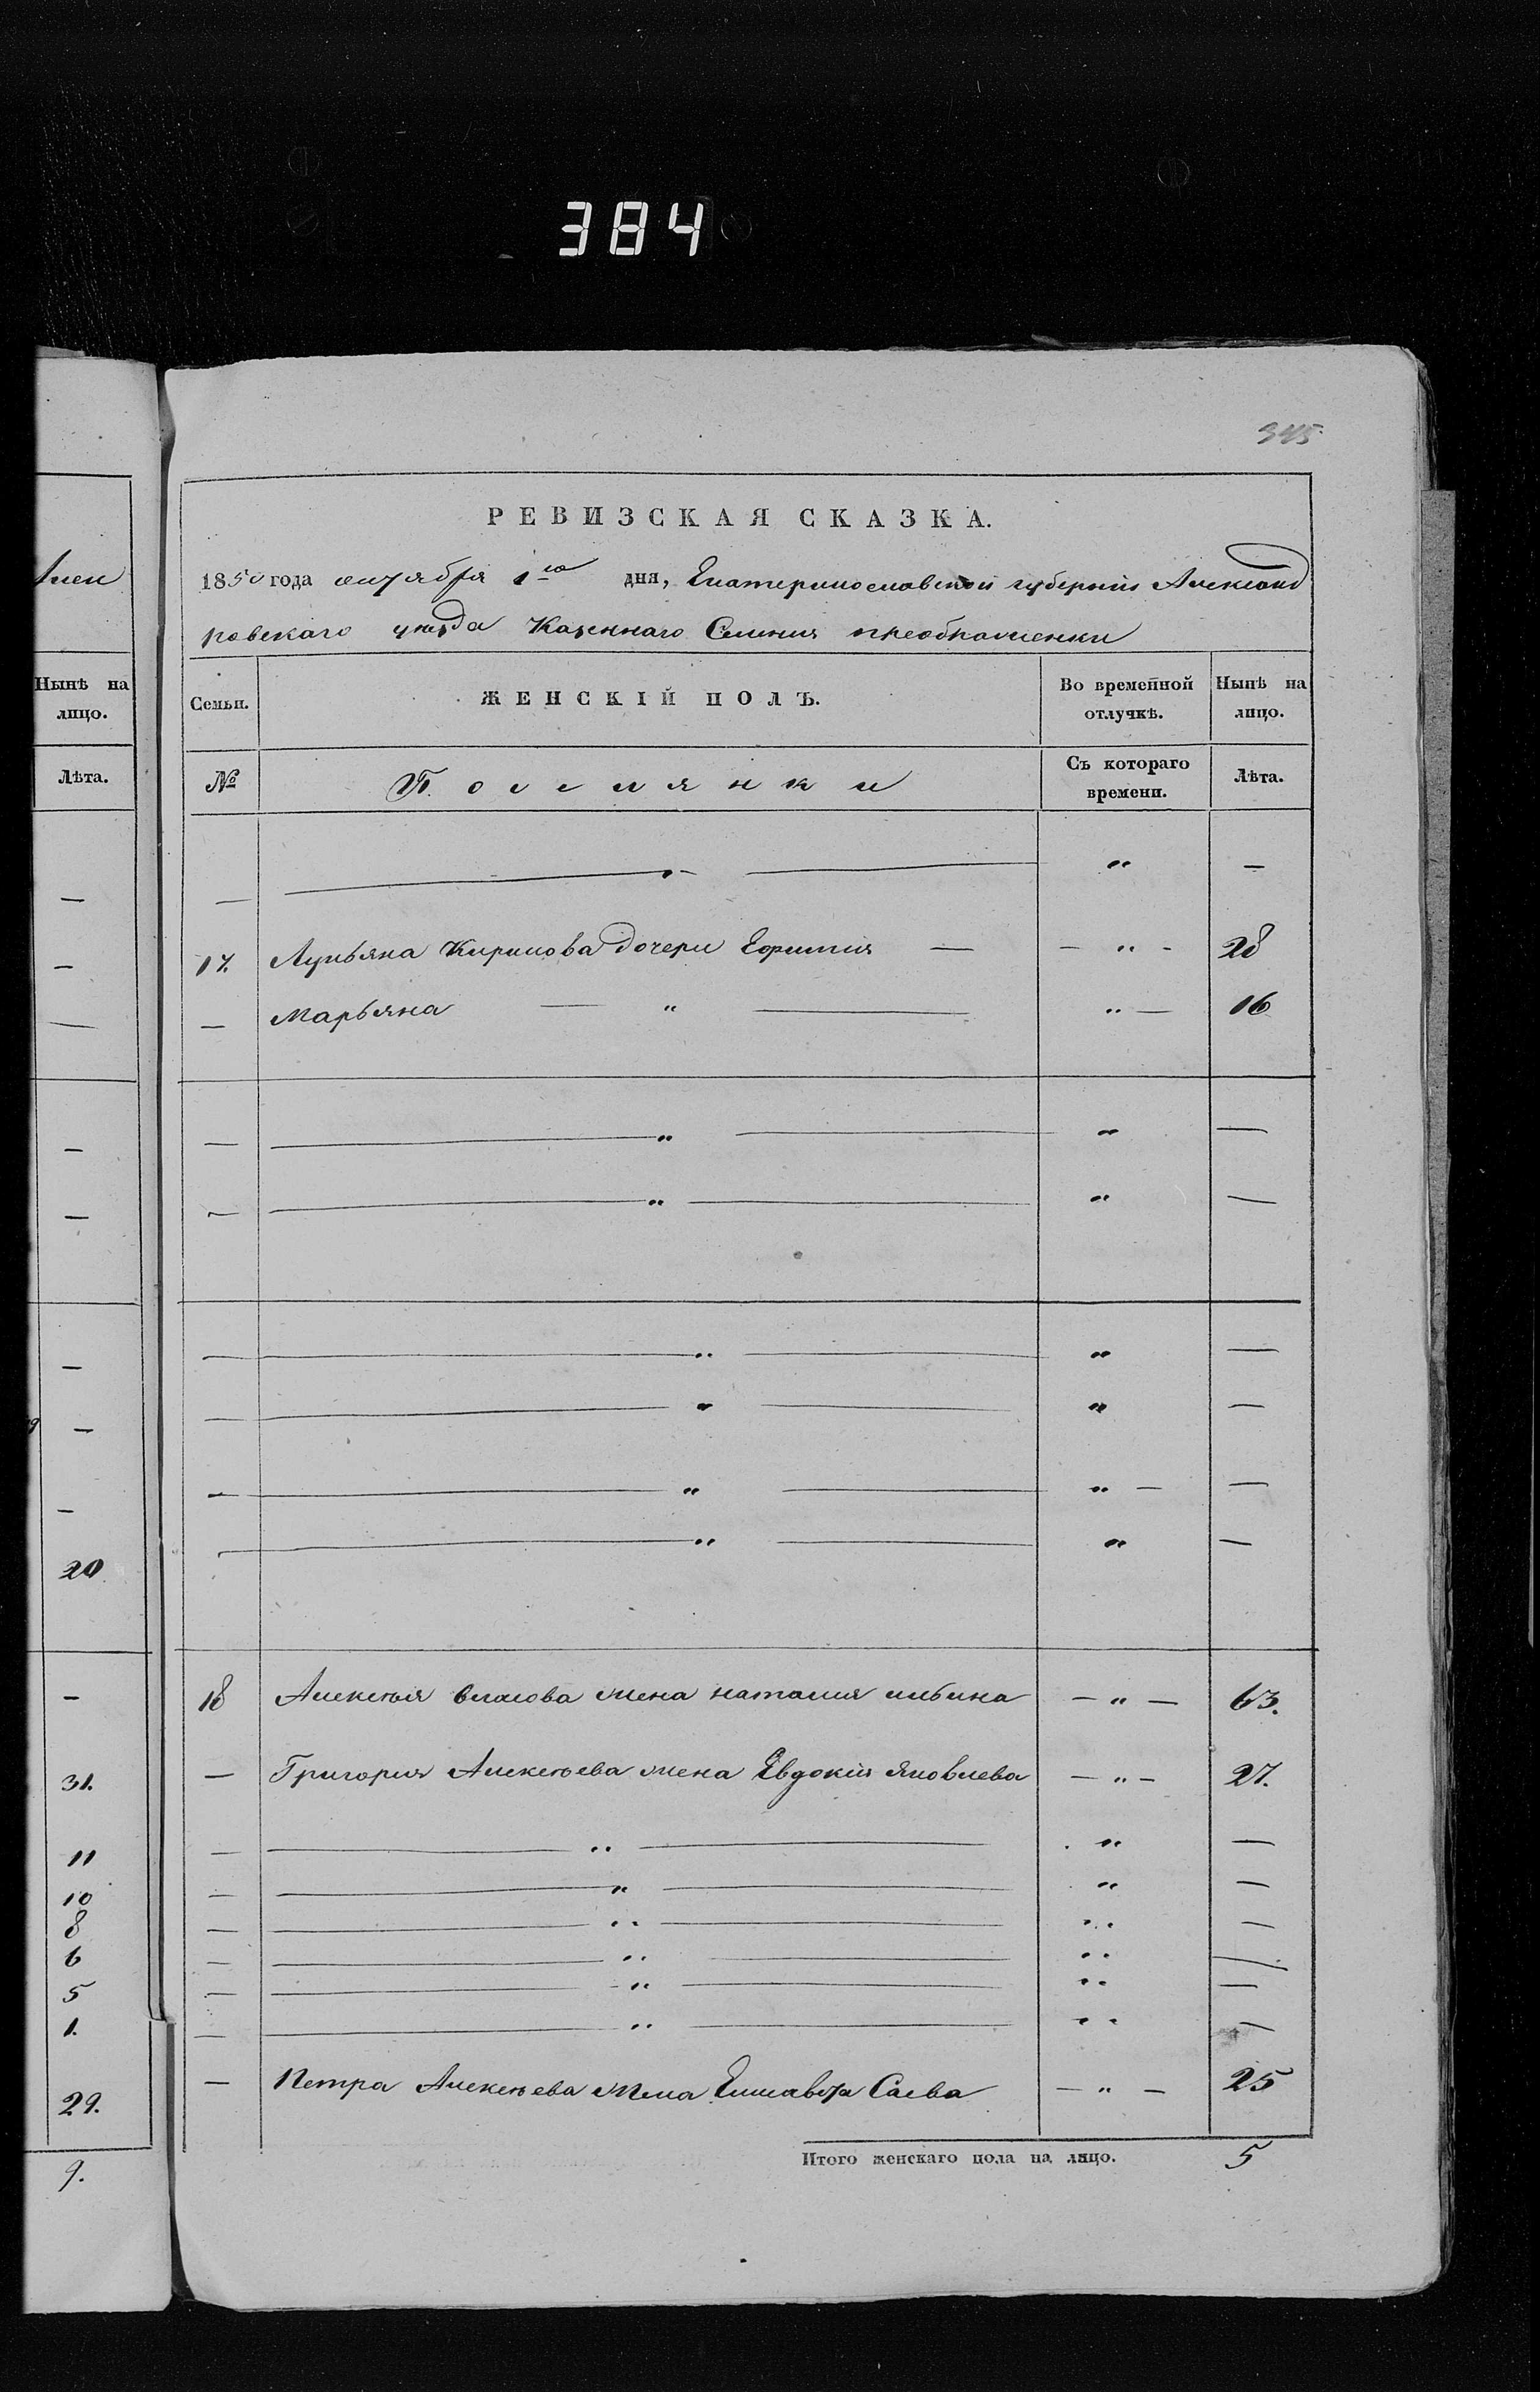 384
345
мен
Нынѣ на
лицо.
Лѣта.
—
—
—
—
—
—
—
—
20
—
31.
11
10
8
6
5
1.
29.
9.
РЕВИЗСКАЯ СКАЗКА.
1850 года октября 1го дня, Екатеринославской губерніи Александ
ровскаго уезда Казеннаго Селения преображенки
Семьи. ЖЕНСКІЙ ПОЛЪ. Во временной отлучкѣ. Нынѣ на лицо.
№ Поселянки Съ котораго времени. Лѣта.
— — „ — „ —
17. Лукьяна Кирилова дочери Ефимия — — „ - 28
— Марьяна — „ — „ — 16
— — „ — „ —
— — „ — „ —
— — „ — „ —
— — „ — „ —
— — „ — „ — —
— — „ — „ —
18 Алексея власова жена наталия ильина — „ — 63.
— Григория Алексеева жена Евдокия Яковлева — „ — 27.
— — „ — „ —
— — „ — „ —
— — „ — „ —
— — „ — „ —
— — „ — „ —
— — „ — „ —
— Петра Алексеева жена Елисавета Саева — „ — 25
Итого женскаго пола на лицо. 5